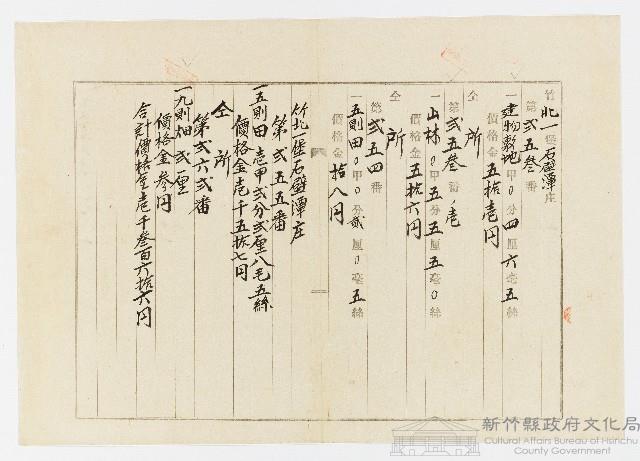 竹北一堡石壁潭庄
第弐五叁番
一建物敷地0甲0分四厘六毫五絲
價格金五拾壱円
仝所
第弐五叁番ノ壱
一山林0甲五分五厘五毫0絲
價格金五拾六円
仝所
第弐五四番
一五則田0甲0分貳厘0毫五絲
價格金拾八円
竹北一堡石壁潭庄
第弐五五番
一五則田壱甲弐分弐厘八毛五絲
價格金壱千五拾七円
仝所
第弐六弐番
一九則畑弐厘
價格金参円
合計價格金壱千叁百六拾六円
新竹縣政府文化局
Cultural Affairs Bureau of Hsinchu
County Government